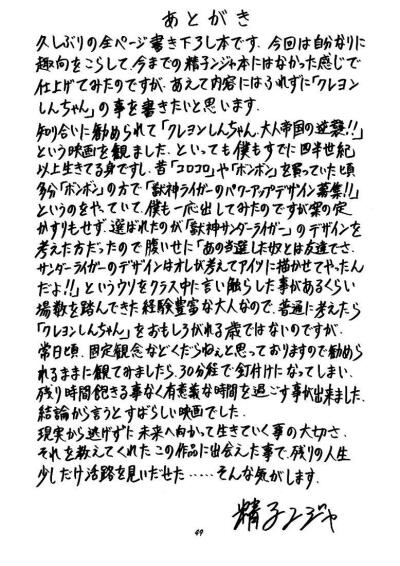 あとがき
久しぶりの全ページ書き下ろし本です。今回は自分なりに
趣向をこらして、今までの精子ンジャ本にはなかった感じで
仕上げてみたのですが、あえて内容にはふれずに「クレヨン
しんちゃん」の事を書きたいと思います。
知り合いに勧められて「クレヨンしんちゃん、大人帝国の逆襲!!」
という映画を観ました。といっても僕もすでに四半世紀
以上生きてる身ですし、昔「コロコロ」や「ボンボン」を買っていた頃
多分「ボンボン」の方で「獣神ライガーのパワーアップデザイン募集!!」
というのをやっていて、僕も一応出してみたのですが案の定
かすりもせず、選ばれたのが「獣神サンダーライガー」のデザインを
考えた方だったので腹いせに「あの当選した奴とは友達でさ、
サンダーライガーのデザインはオレが考えてアイツに描かせてやったん
だよ!!」というウソをクラス中に言い触らした事があるくらい
場数を踏んできた経験豊富な大人なので、普通に考えたら
「クレヨンしんちゃん」をおもしろがれる歳ではないのですが、
常日頃、固定観念などくだらねぇと思っておりますので勧めら
れるままに観てみましたら、30分程で釘付けになってしまい、
残り時間飽きる事なく有意義な時間を過ごす事が出来ました。
結論から言うとすばらしい映画でした。
現実から逃げずに未来へ向かって生きていく事の大切さ、
それを教えてくれたこの作品に出会えた事で、残りの人生
少しだけ活路を見いだせた……そんな気がします。
精子ンジャ
49